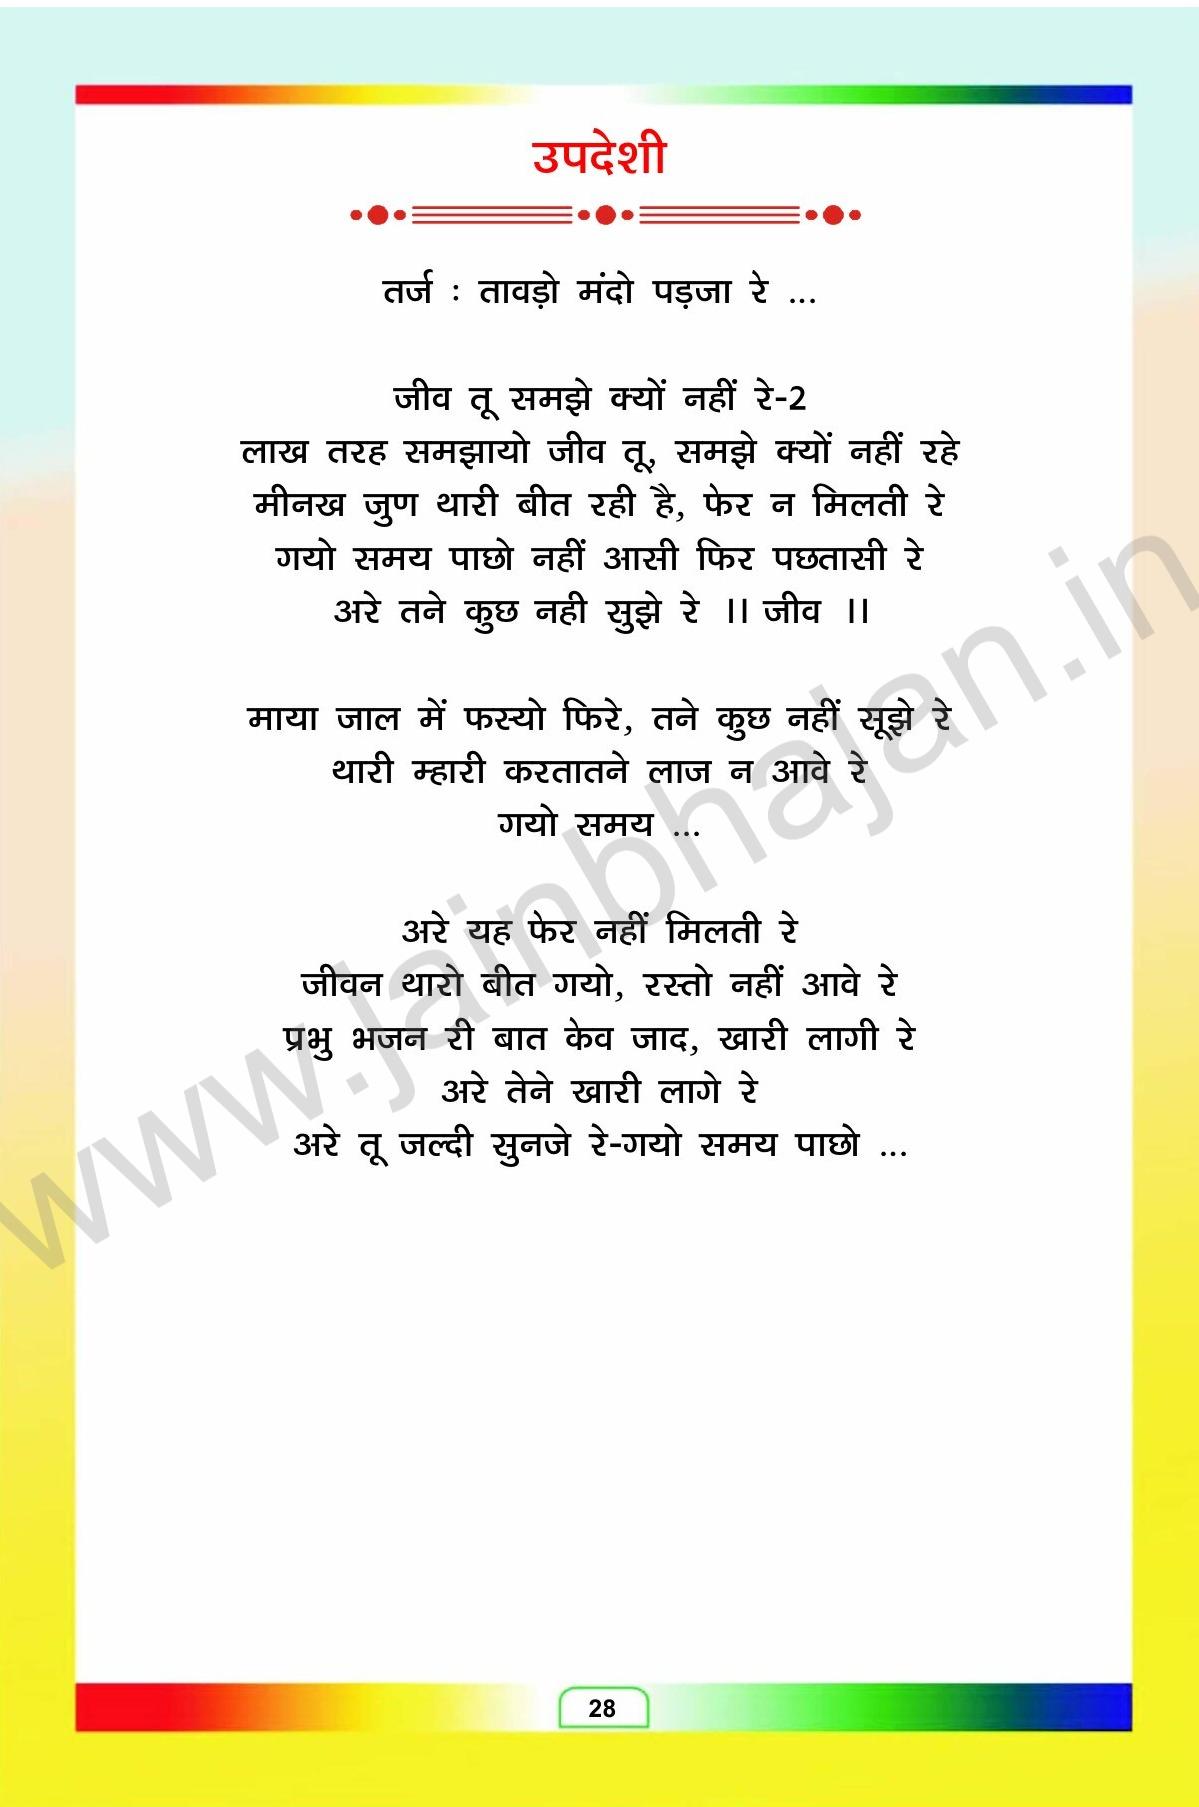 उपदेशी
तर्ज : तावड़ो मंदो पड़जा रे ...
जीव तू समझे क्यों नहीं रे-2
लाख तरह समझायो जीव तू, समझे क्यों नहीं रहे
मीनख जुण थारी बीत रही है, फेर न मिलती रे
गयो समय पाछो नहीं आसी फिर पछतासी रे
अरे तने कुछ नही सुझे रे ।। जीव ।।
माया जाल में फस्यो फिरे, तने कुछ नहीं सूझे रे
थारी म्हारी करतातने लाज न आवे रे
गयो समय ...
अरे यह फेर नहीं मिलती रे
जीवन थारो बीत गयो, रस्तो नहीं आवे रे
प्रभु भजन री बात केव जाद, खारी लागी रे
अरे तेने खारी लागे रे
अरे तू जल्दी सुनजे रे-गयो समय पाछो ...
www.jainbhajan.in
28